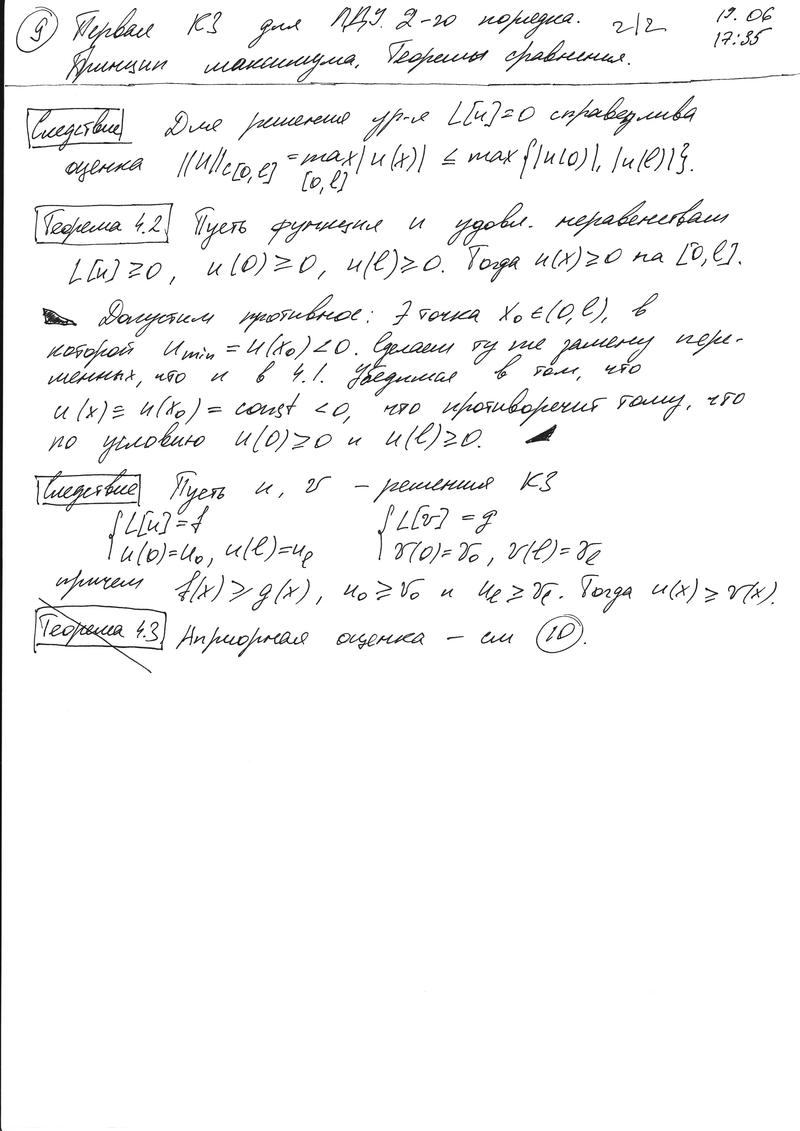 9 Первая КЗ для ЛДУ 2-го порядка. 2/2 19.06
Принцип максимума. Теоремы сравнения. 17:35
Следствие Для решения ур-я L[u]=0 справедлива
оценка ||u||C[0,l] = max|u(x)| ≤ max{|u(0)|, |u(l)|}.
[0,l]
Теорема 4.2 Пусть функция u удовл. неравенствам
L[u]≥0, u(0)≥0, u(l)≥0. Тогда u(x)≥0 на [0,l].
Допустим противное: ∃ точка x₀∈(0,l), в
которой u min = u(x₀)<0. Сделаем ту же замену пере-
менных, что и в 4.1. Убедимся в том, что
u(x) ≡ u(x₀) = const <0, что противоречит тому, что
по условию u(0)≥0 и u(l)≥0.
Следствие Пусть u, v – решения КЗ
{ L[u]=f { L[v]=g
u(0)=u₀, u(l)=uₗ v(0)=v₀, v(l)=vₗ
причем f(x)≥g(x), u₀≥v₀ и uₗ≥vₗ. Тогда u(x)≥v(x).
Теорема 4.3 Априорная оценка – см 10.